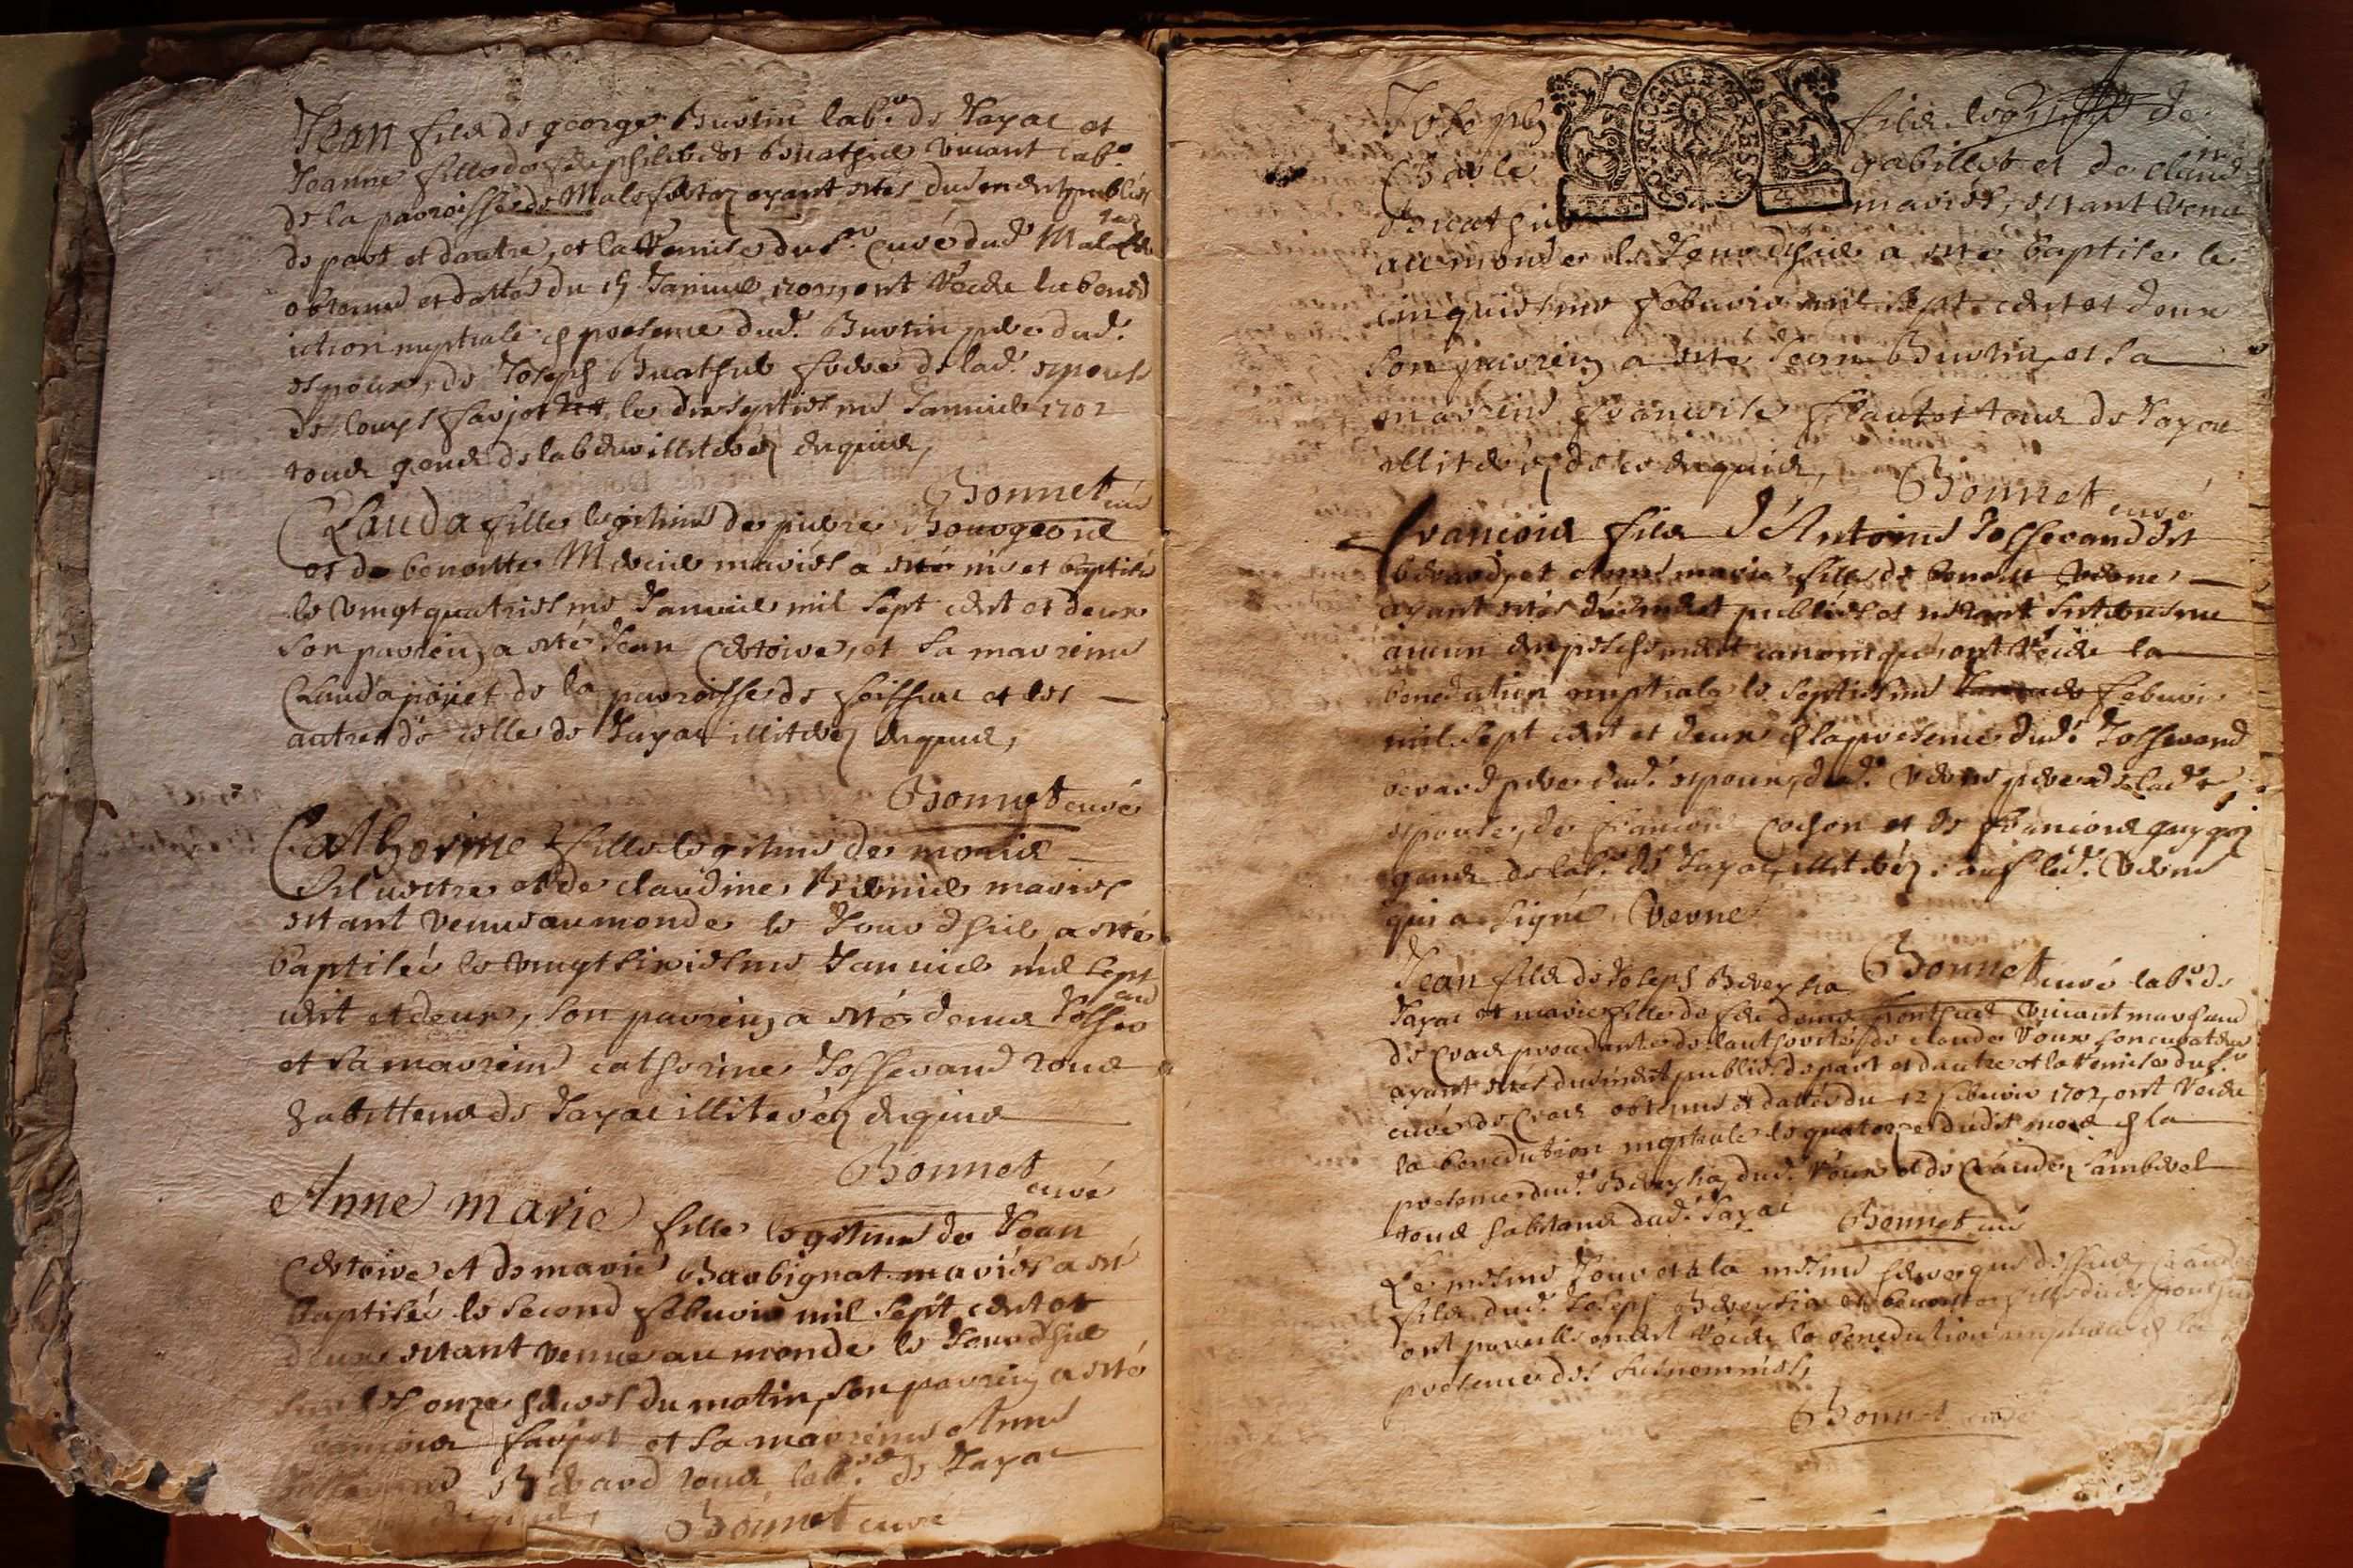 Jean fils de george Buviin lab.r de Jayac et
Jeanne fille de feu philibert Buathier vivant lab.r
de la parroisse de Malafretaz ayant estés duement publiés
de part et dautre, et la Remise du s.r curé dud.
obtenue et dattée du 15 Januier 1702, ont Receu la bened
iction nuptiale e presence dud. Buviin pere dud.
espoux, de Joseph Buathier frere de lad. espouse
de louys favjot les dixseptiesme Januier 1702
tous gens de labeur illiterez enquis,
Bonnet curé
Clauda fille legitime de pierre Bourgeois
et de benoitte Mercier mariés a esté née et baptisée
le vingtquatriesme Januier mil sept cent et deux
son parrein a esté Jean Cretoire, et sa marreine
Clauda poüet de la parroisse de foissiac et les
autres de celle de Jayac illiterez enquis,
Bonnet curé
Catherine fille legitime de
Siluestre et de claudine Bernier mariés
estant venue au monde le Jour dhier a esté
baptisée le vingtsixiesme Januier mil sept
cent et deux, son parrein a esté
et sa marreine catherine Josserand tous
habittans de Jayac illiterez enquis
Bonnet curé
Anne marie fille legitime de Jean
Cretoire et de marie Barbignat mariés a esté
baptisée le second febvrier mil sept cent et
deux estant venue au monde le Jour dhier
sur les onze heures du matin, son parrein a esté
françois favjot et sa marreine Anne
Josserand Berard tous lab.rs de Jayac
enquis,
Bonnet curé
Joseph fils legitime de
Charle gabillet et de claudine
Buathier mariés, estant venu
au monde le Jourdhier a esté baptisé le
cinquiesme febvrier mil sept cent et deux
son parrein a esté Jean Buviin, et sa
marreine françoise flautet tous de Jayac
illiterez de ce enquis,
Bonnet curé
françois fils d'Antoine Josserand dit
berard, et anne marie fille de benoit verne
ayant estés duement publiés et nestant suruenu
aucun empeschement canonique, ont Receu la
benediction nuptiale le septiesme febvrier
mil sept cent et deux e la presence dud. Josserand
berard pere dud. espoux, dud. verne pere de lad.
espouse, de françois cochon et de françois guygoz
gens de lab.r de Jayac, illiterez: sauf led. Verne
qui a signé, Verne
Bonnet curé
Jean fils de Joseph Bereysia lab.r de
Jayac et marie fille de feu denis ponthus vivant marchand
de Cras procedante de lauthorité de claude Roux son curateur
ayant estés duement publiés de part et dautre et la Remise du s.r
curé de Cras obtenue et dattée du 12 febvrier 1702, ont Receu
la benediction nuptiale le quatorze dudit mois e la
presence dud. Bereysia, dud. Roux et de Claude Lambert
tous habitans dud. Jayac
Bonnet curé
Le mesme Jour et a la mesme heure que dessus, claude
fils dud. Joseph Bereysia et benoite fille dud. ponthus
ont pareillement Receu la benediction nuptiale e la
presence des susnommés,
Bonnet curé